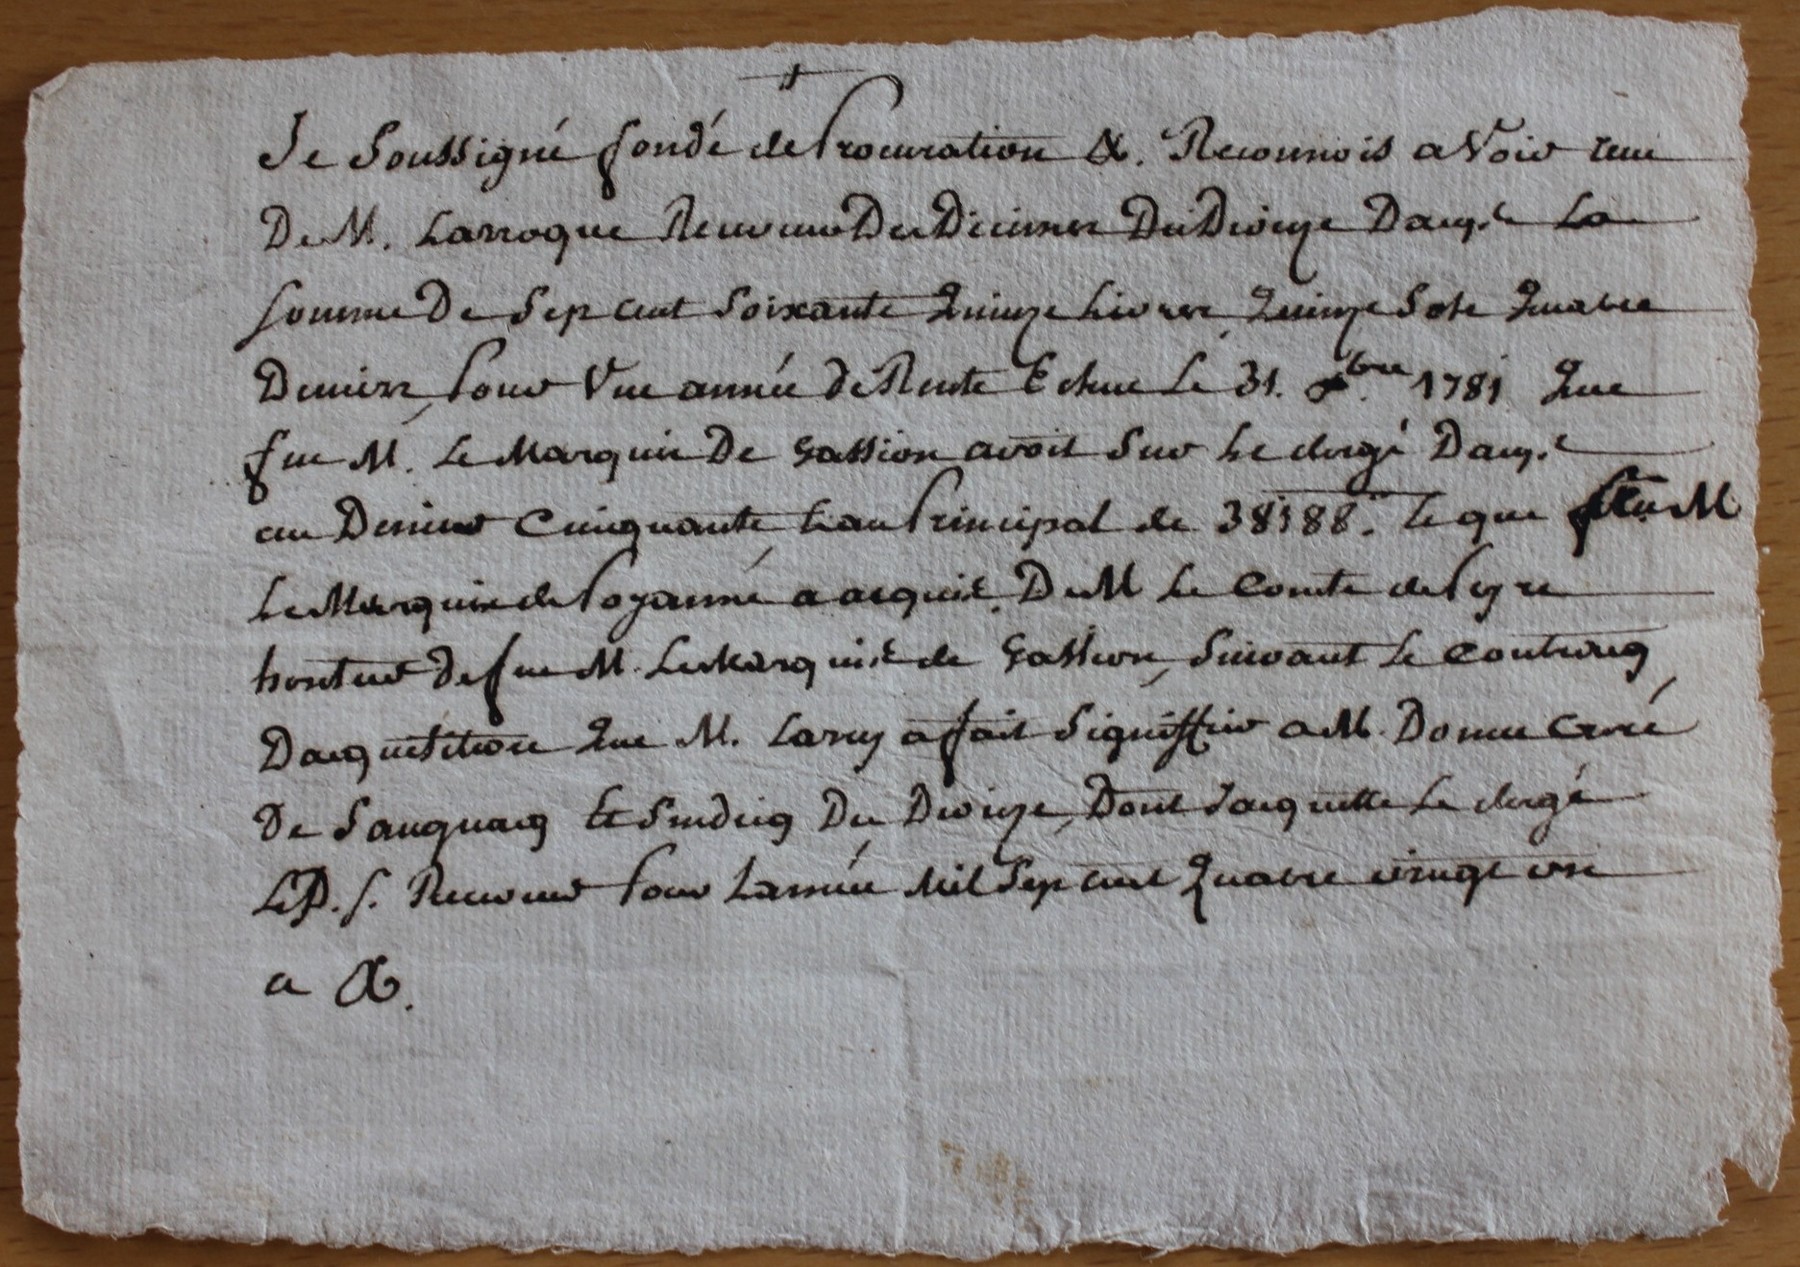 Je Soussigné fondé de Procuration &. Reconnois avoir reçu
De M. Larroque Receveur Des Decimes Du Dioceze Dacqs La
somme De Sep cent Soixante Quinze Livres Quinze Sols Quatre
Deniers, Pour Une année De Rente Echue Le 31. Xbre 1781 Que
feu M. Le Marquis De Gassion avoit Sur Le clergé Dacqs
au Denier Cinquante au Principal de 38788. Le que feu M
Le Marquis de Poyanne a acquis De M Le Comte de Peyre
heritier de feu M. Le Marquis de Gassion, Suivant Le Contracq
Dacquisition Que M. Larrey a fait Signiffier a M. Domec Curé
De Saugnacq Et Sindicq Du Dioceze, Dont Jacquitte Le clergé
Le D. S. Receveur Pour Lannée Mil Sep cent Quatre vingt un
a &.